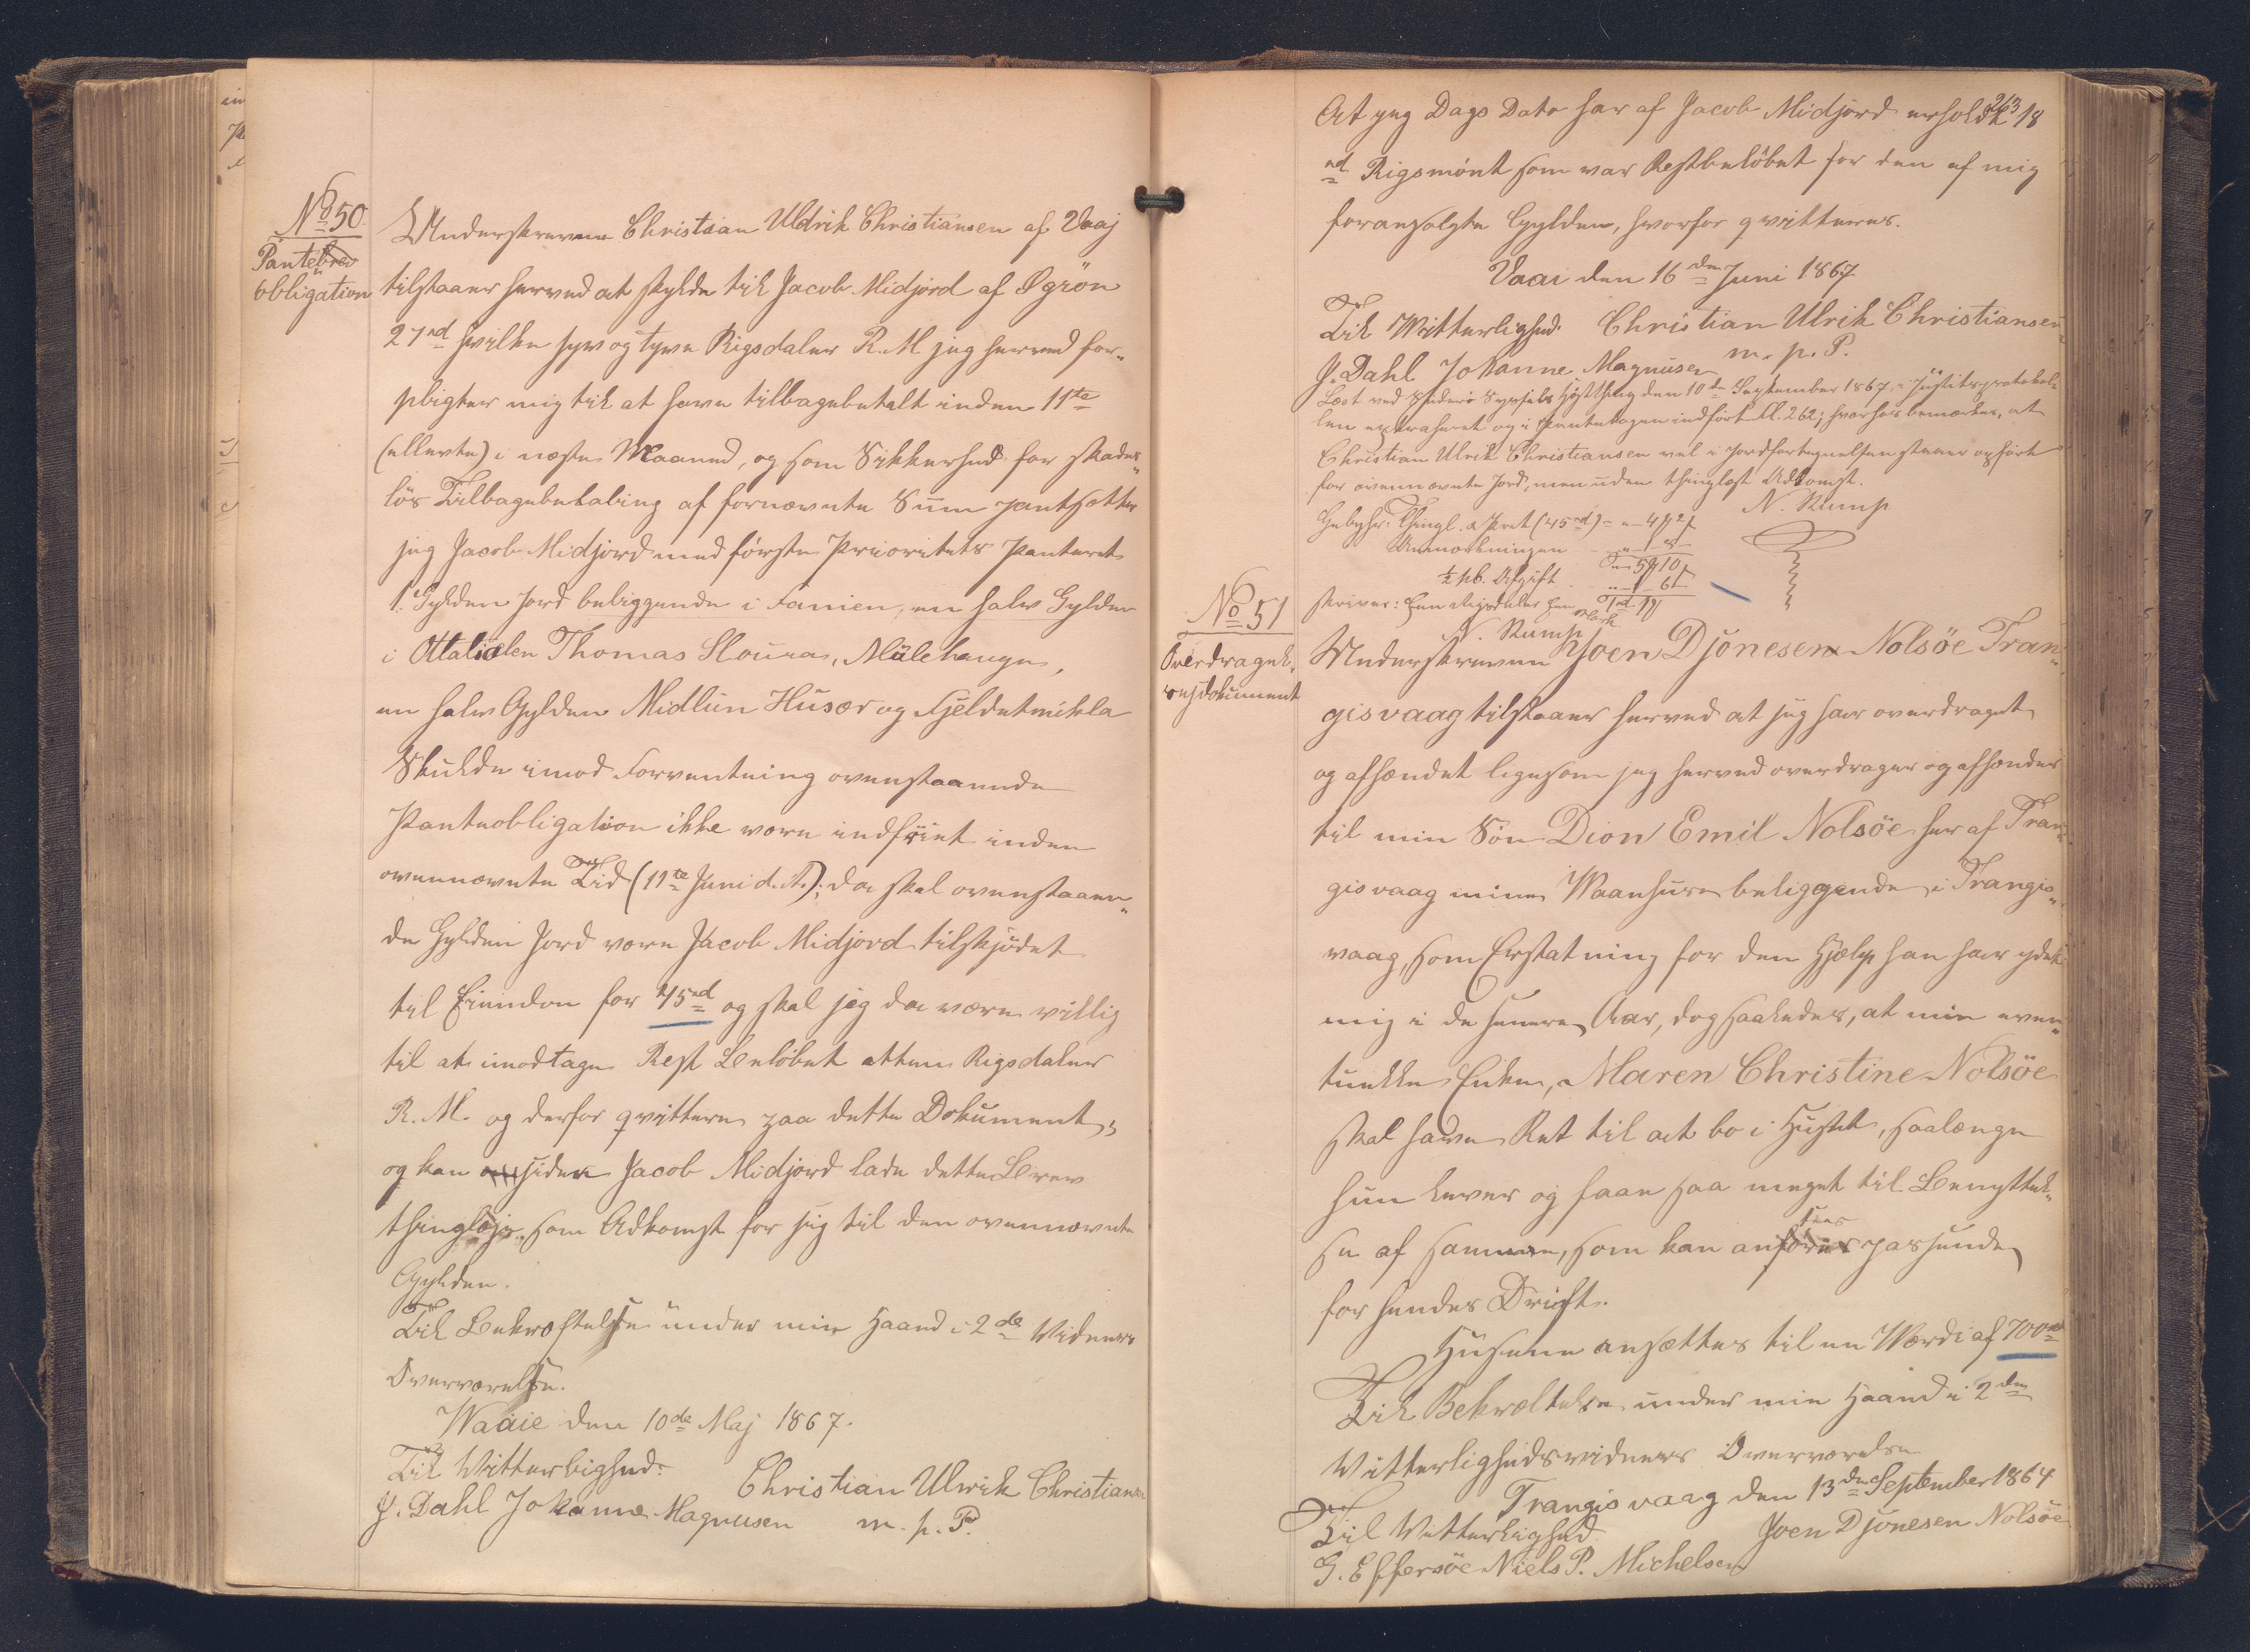 No 50.
Pantebrev
obligation
Underskrevne Christian Uldrik Christiansen af Vaaj
tilstaaer herved at skylde til Jacob Midjord af Øgrön
27 rd hvilke syv og tyve Rigsdaler R.M jeg herved for„
pligter mig til at have tilbagebetalt inden 11te
(ellevte) i næste Maaned, og som Sikkerhed for skades„
lös Tilbagebetaling af fornævnte Sum pantsætter
jeg Jacob Midjord med förste Prioritets Panteret
1. Gylden Jord beliggende i Famien, en halv Gylden
i Thomas Mülehauge,
en halv Gylden Midlün Hüsar og Fjeldetmikla
Skulde imod Forventning ovenstaaende
Panteobligation ikke være indfriet inden
ovennævnte Tid (11te Juni d. A.); da skal ovenstaaen„
de Gylden Jord være Jacob Midjord tilskjödet
til Eiendom for 45 rd og skal jeg da være villig
til at imodtage Rest Belöbet atten Rigsdaler
R. M. og derfor qvittere paa dette Dokument,
og kan siden Jacob Midjord lade dette Brev
thinglæse som Adkomst for sig til den ovennævnte
Gylden.
Til Bekræftelse under min Haand i 2de Vidners
Overværelse.
Waaie den 10de Maj 1867.
Til Vitterlighed:
Christian Ulrik Christiansen
J. Dahl Johanne Magnusen m. p. P.
263
At jeg Dags Dato har af Jacob Midjord erholdt 18
rd Rigsmönt som var Restbelöbet for den af mig
foransolgte Gylden, hvorfor qvitteres.
Vaai den 16de Juni 1867
Til Vitterlighed. Christian Ulrik Christiansen
J. Dahl Johanne Magnusen m. p. P.
Læst ved Suderö Syssels Hösthing den 10de September 1867, i Justitsprotokol„
len extraheret og i Pantebogen indfört fol. 262; hvorhos bemærkes, at
Christian Ulrik Christiansen vel i Jordfortegnelsen staaer opfört
for ovennævnte Jord, men uden thinglæst Adkomst.
N. Rump
Gebyhr: Thingl. a Pret (45 rd) = „ 4 ₥ 2 ß
Anmærkningen „ „ 8
5 ₥ 10 ß
½ pb. Afgift „ „ 6 ß
skriver: Een Rigsdaler een Mark 1 rd 1 ₥
N. Rump
No 51
Overdragel„
sesdokument
Underskreven Joen Djonesen Nolsöe Tran„
gisvaag tilstaaer herved at jeg har overdraget
og afhændet ligesom jeg herved overdrager og afhænder
til min Sön Dion Emil Nolsöe her af Tran„
gisvaag mine Vaanhuse beliggende i Trangis„
vaag, som Erstatning for den Hjælp han har ydet
mig i de senere Aar, dog saaledes, at min even„
tuelle Enke, Maren Christine Nolsöe
skal have Ret til at bo i Huset, saalænge
hun lever og faae saa meget til Benyttel„
se af samme, som kan ansees passende
for hendes Drift.
Husene ansættes til en Værdi af 700 rd
Til Bekræftelse under min Haand i 2de
Vitterlighedsvidners Overværelse
Trangisvaag den 13de September 1864
Til Vitterlighed. Joen Djonesen Nolsöe
G. Effersöe Niels P. Michelsen